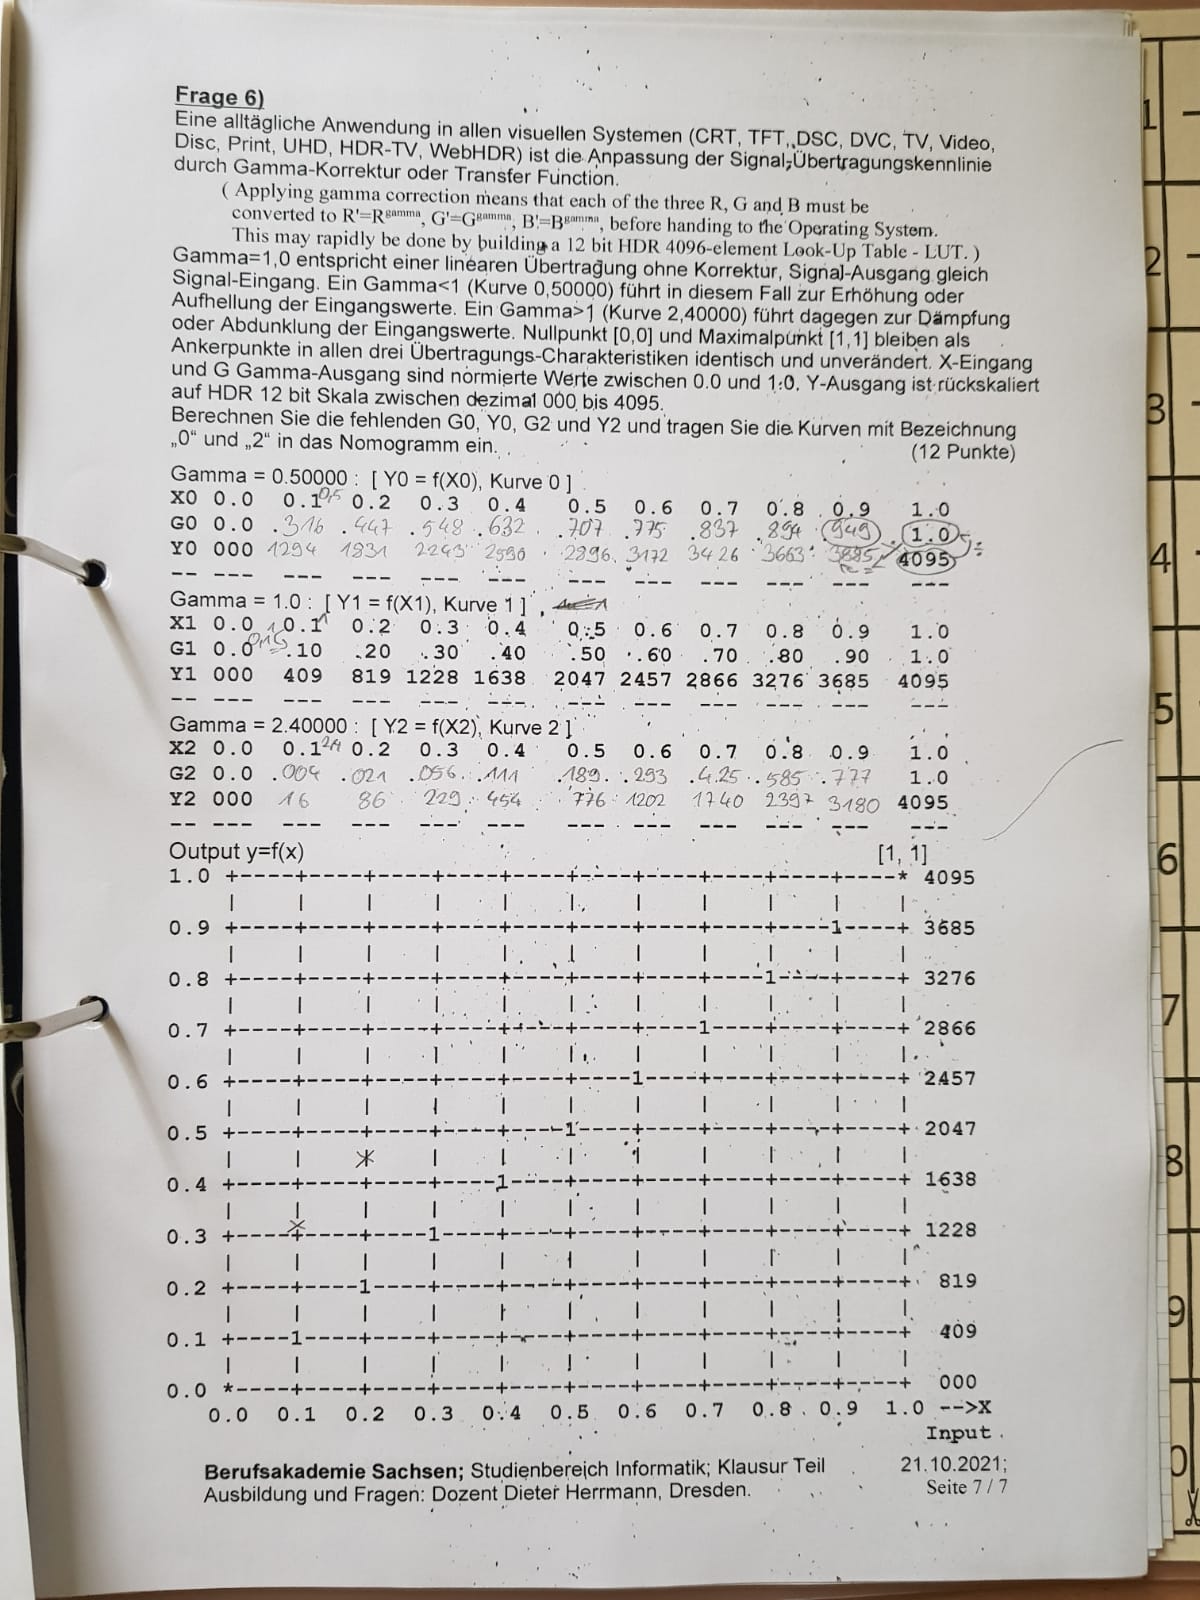 Frage 6)
Eine alltägliche Anwendung in allen visuellen Systemen (CRT, TFT, DSC, DVC, TV, Video,
Disc, Print, UHD, HDR-TV, WebHDR) ist die Anpassung der Signal-Übertragungskennlinie
durch Gamma-Korrektur oder Transfer Function.
( Applying gamma correction means that each of the three R, G and B must be
converted to R'=Rgamma, G'=Ggamma, B'=Bgamma, before handing to the Operating System.
This may rapidly be done by building a 12 bit HDR 4096-element Look-Up Table - LUT. )
Gamma=1,0 entspricht einer linearen Übertragung ohne Korrektur, Signal-Ausgang gleich
Signal-Eingang. Ein Gamma<1 (Kurve 0,50000) führt in diesem Fall zur Erhöhung oder
Aufhellung der Eingangswerte. Ein Gamma>1 (Kurve 2,40000) führt dagegen zur Dämpfung
oder Abdunklung der Eingangswerte. Nullpunkt [0,0] und Maximalpunkt [1,1] bleiben als
Ankerpunkte in allen drei Übertragungs-Charakteristiken identisch und unverändert. X-Eingang
und G Gamma-Ausgang sind normierte Werte zwischen 0.0 und 1.0. Y-Ausgang ist rückskaliert
auf HDR 12 bit Skala zwischen dezimal 000 bis 4095.
Berechnen Sie die fehlenden G0, Y0, G2 und Y2 und tragen Sie die Kurven mit Bezeichnung
„0“ und „2“ in das Nomogramm ein. (12 Punkte)
Gamma = 0.50000 : [ Y0 = f(X0), Kurve 0 ]
X0 0.0 0.1 0,5 0.2 0.3 0.4 0.5 0.6 0.7 0.8 0.9 1.0
G0 0.0 .316 .447 .548 .632 .707 .775 .837 .894 .949 1.0
Y0 000 1294 1831 2243 2590 2896 3172 3426 3663 3885 4095
-- --- --- --- --- --- --- --- --- --- --- ---
Gamma = 1.0 : [ Y1 = f(X1), Kurve 1 ]
X1 0.0 0.1 0.2 0.3 0.4 0.5 0.6 0.7 0.8 0.9 1.0
G1 0.0 .10 .20 .30 .40 .50 .60 .70 .80 .90 1.0
Y1 000 409 819 1228 1638 2047 2457 2866 3276 3685 4095
-- --- --- --- --- --- --- --- --- --- --- ---
Gamma = 2.40000 : [ Y2 = f(X2), Kurve 2 ]
X2 0.0 0.1 2,4 0.2 0.3 0.4 0.5 0.6 0.7 0.8 0.9 1.0
G2 0.0 .004 .021 .056 .111 .189 .293 .425 .585 .777 1.0
Y2 000 16 86 229 454 776 1202 1740 2397 3180 4095
-- --- --- --- --- --- --- --- --- --- --- ---
Output y=f(x) [1, 1]
1.0 +----+----+----+----+----+----+----+----+----+----* 4095
0.9 +----+----+----+----+----+----+----+----+----1----+ 3685
0.8 +----+----+----+----+----+----+----+----1----+----+ 3276
0.7 +----+----+----+----+----+----+----1----+----+----+ 2866
0.6 +----+----+----+----+----+----1----+----+----+----+ 2457
0.5 +----+----+----+----+----1----+----+----+----+----+ 2047
0.4 +----+----+----+----1----+----+----+----+----+----+ 1638
0.3 +----+----+----1----+----+----+----+----+----+----+ 1228
0.2 +----+----1----+----+----+----+----+----+----+----+ 819
0.1 +----1----+----+----+----+----+----+----+----+----+ 409
0.0 *----+----+----+----+----+----+----+----+----+----+ 000
0.0 0.1 0.2 0.3 0.4 0.5 0.6 0.7 0.8 0.9 1.0 -->X
Input
Berufsakademie Sachsen; Studienbereich Informatik; Klausur Teil 21.10.2021;
Ausbildung und Fragen: Dozent Dieter Herrmann, Dresden. Seite 7 / 7
1
2
3
4
5
6
7
8
9
0